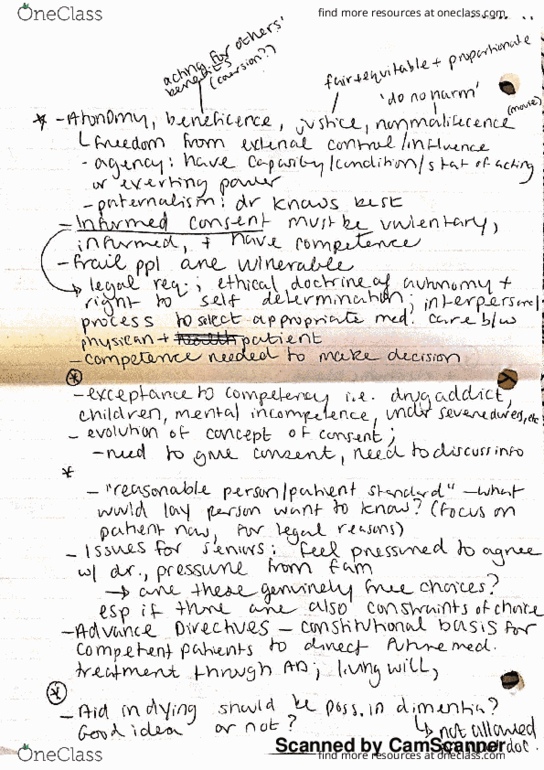 OneClass
find more resources at oneclass.com
acting for others'
benefits
(coersion??)
fair + equitable + proportionate
'do no harm'
* - Atonomy, beneficence, justice, nonmalifecence
↳ freedom from external control/influence
- agency: have capacity/condition/stat of acting
or exerting power
- paternalism: dr knows best
- Informed consent must be vulentary,
infurmed, + have competence
- frail ppl are vulnerable
→ legal req.; ethical doctrine of autonomy +
right to self determination; interpersonal
process to select appropriate med. care b/w
physican + health patient
- competence needed to make decision
*
- exceptance to competency i.e. drug addict,
children, mental incompetence, under severe dures, etc
- evolution of concept of consent;
- need to give consent, need to discuss info
*
- "reasonable person/patient standard" - what
would lay person want to know? (focus on
patient now, for legal reasons)
- Issues for seniors: feel pressured to agree
w/ dr., pressure from fam
→ are these genuinely free choices?
esp if there are also constraints of choice
- Advance Directives - constitutional basis for
competent patients to direct future med.
treatment through AD; living will,
*
- Aid in dying should be poss. in dimentia?
Good idea or not?
↳ not allowed
doc.
Scanned by CamScanner
OneClass
find more resources at oneclass.com